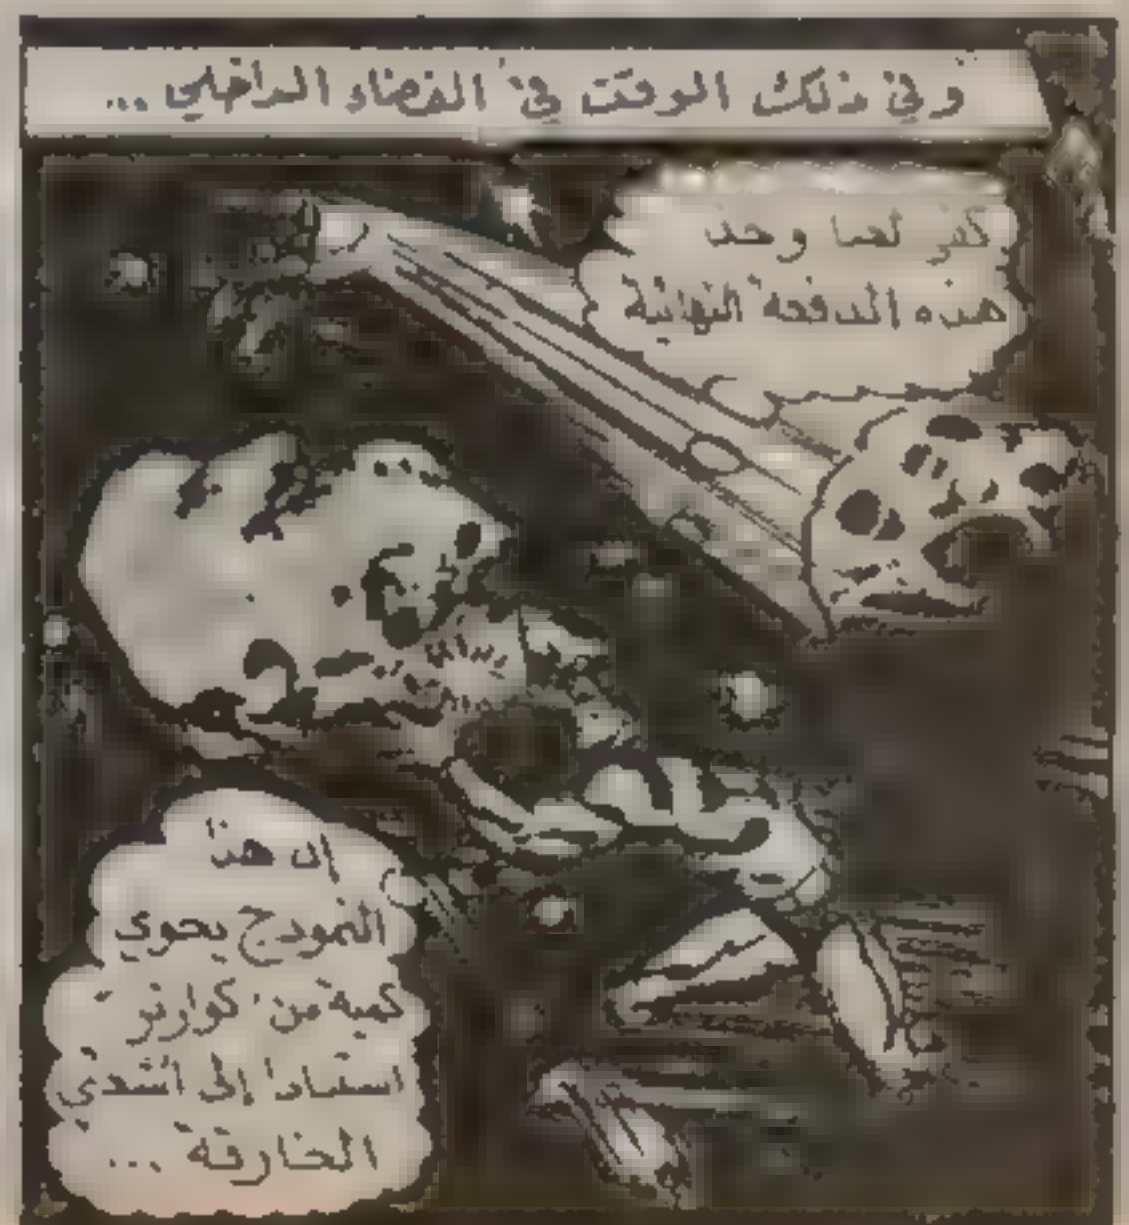 وفي ذلك الوقت في الفضاء الداخلي ...
لعبا وخذ
هذه الدفعة النهائية
إن هذا
النموذج يحوي
كمية من كوارتز
استنادا إلى أشعتي
الخارقة ...